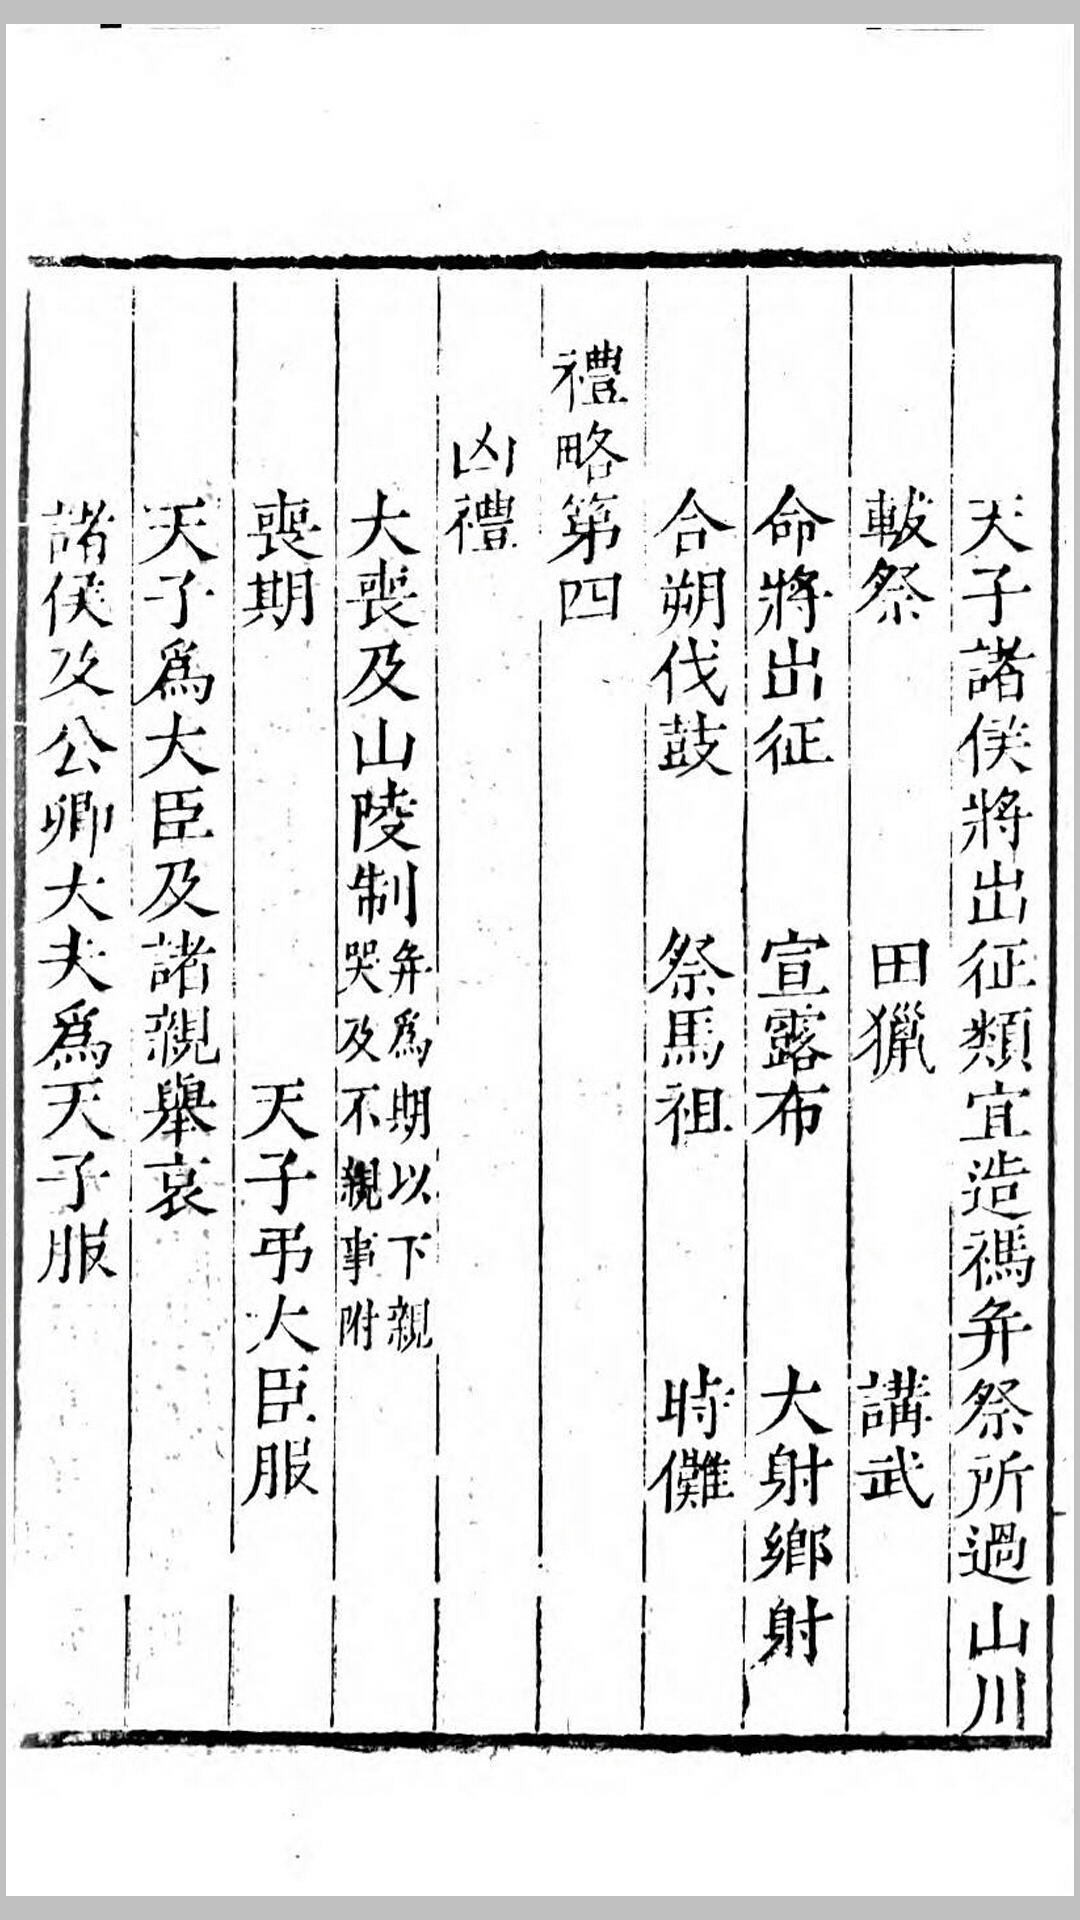 天子諸侯將出征類宜造禡弁祭所過山川
軷祭 田獵 講武
命將出征 宣露布 大射鄉射
合朔伐鼓 祭馬祖 時儺
禮略第四
凶禮
大喪及山陵制弁爲期以下親哭及不親事附
喪期 天子弔大臣服
天子爲大臣及諸親舉哀
諸侯及公卿大夫爲天子服